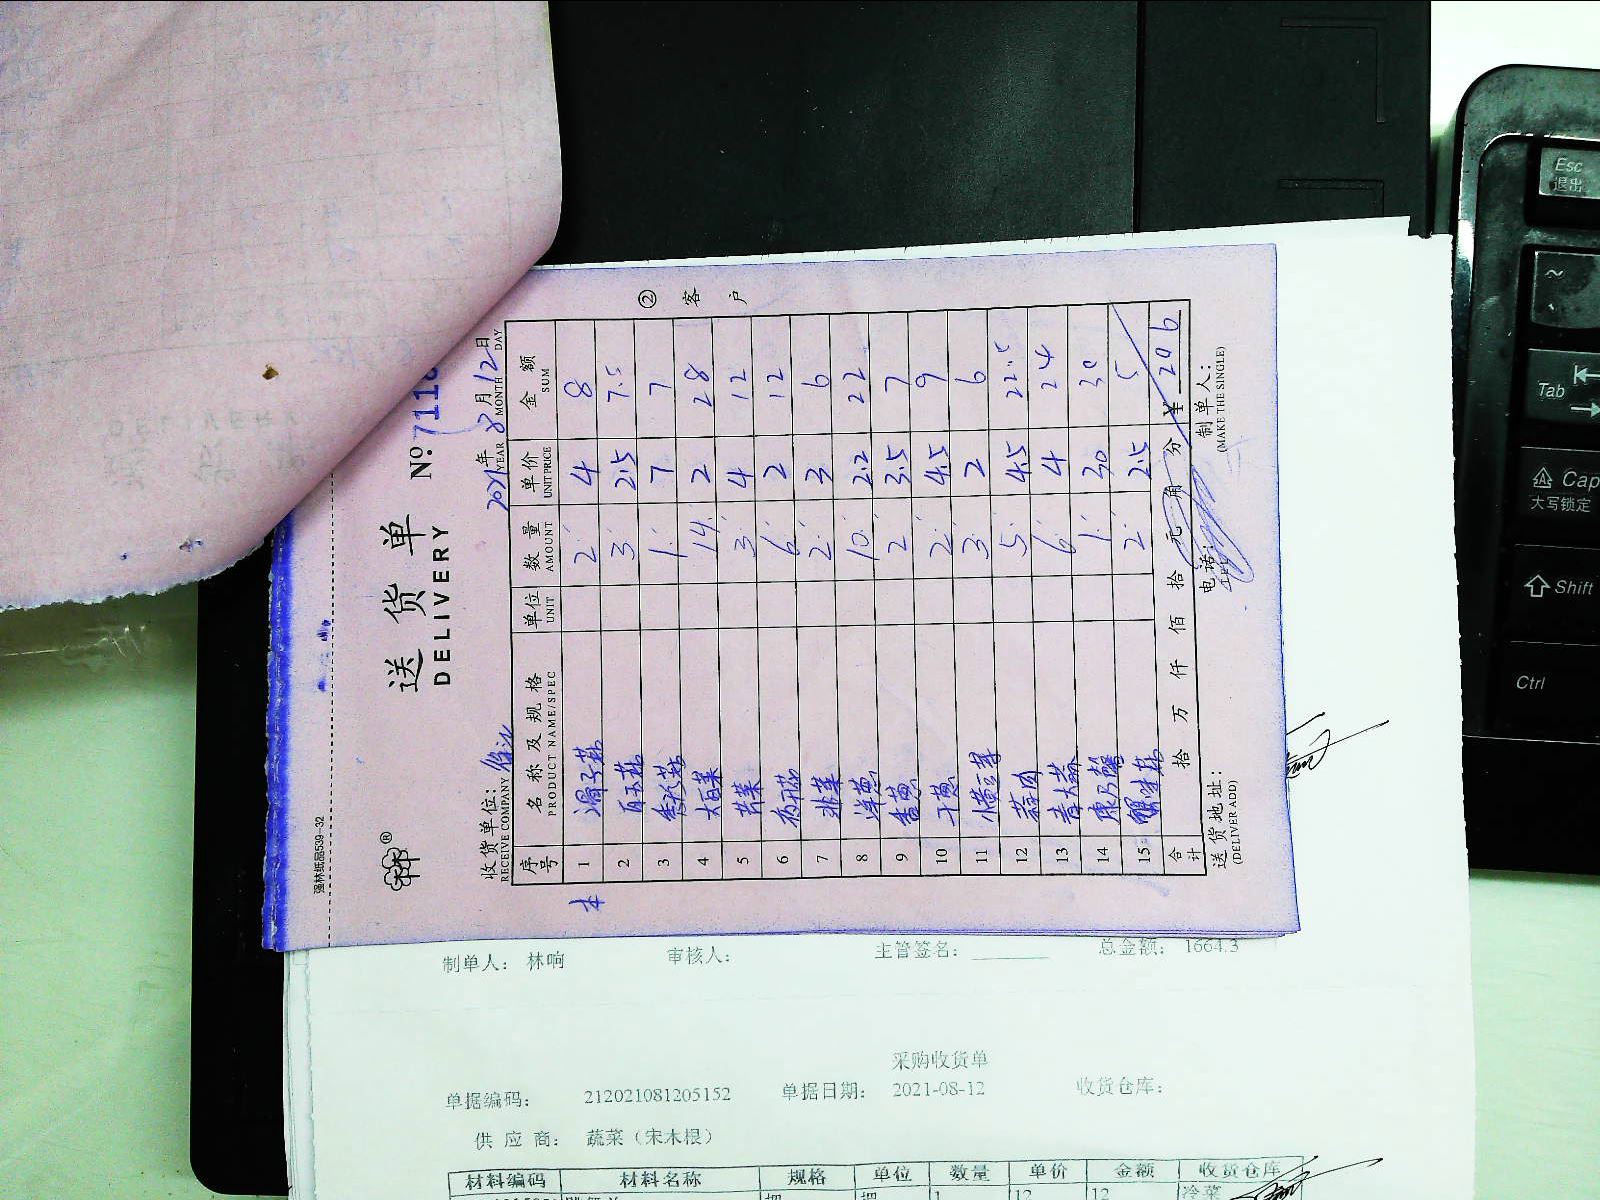 强林纸品539-32
送货单
DELIVERY
№ 7118
收货单位：
RECEIVE COMPANY
2021年 8月 12日
YEAR MONTH DAY
序号 名称及规格 单位 数量 单价 金额
PRODUCT NAME/SPEC UNIT AMOUNT UNIT PRICE SUM
1 滑子菇 2 4 8
2 白玉菇 3 2.5 7.5
3 1 7 7
4 大白菜 14 2 28
5 芹菜 3 4 12
6 6 2 12
7 韭菜 2 3 6
8 洋葱 10 2.2 22
9 香葱 2 3.5 7
10 干葱 2 4.5 9
11 小黄豆芽 3 2 6
12 蒜肉 5 4.5 22.5
13 青大蒜 6 4 24
14 1 30 30
15 蟹味菇 2 2.5 5
合计 拾 万 仟 佰 拾 元 角 分 ¥ 206
送货地址：
(DELIVER ADD)
电话：
制单人：
(MAKE THE SINGLE)
② 客户
制单人： 林响 审核人： 主管签名： 总金额： 1664.3
采购收货单
单据编码： 212021081205152 单据日期： 2021-08-12 收货仓库：
供应商： 蔬菜（宋木根）
材料编码 材料名称 规格 单位 数量 单价 金额 收货仓库
把 把 1 12 12 冷菜
Esc
退出
~
Tab
Cap
大写锁定
Shift
Ctrl